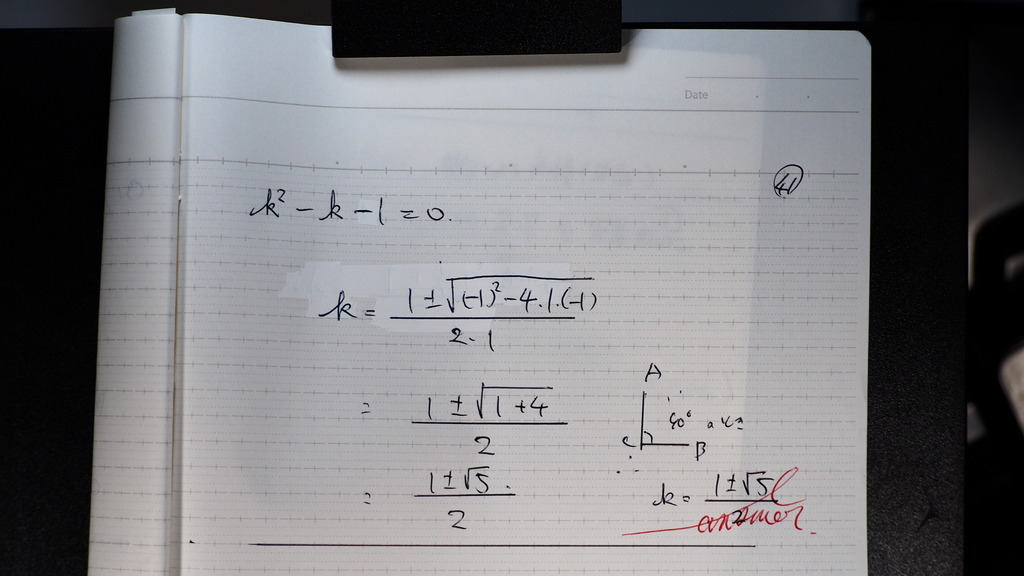 Date
41
k² - k - 1 = 0.
k = (1 ± √((-1)² - 4.1.(-1))) / (2.1)
= (1 ± √(1+4)) / 2
A
C
B
= (1 ± √5) / 2
k = (1 ± √5) / 2
answer.